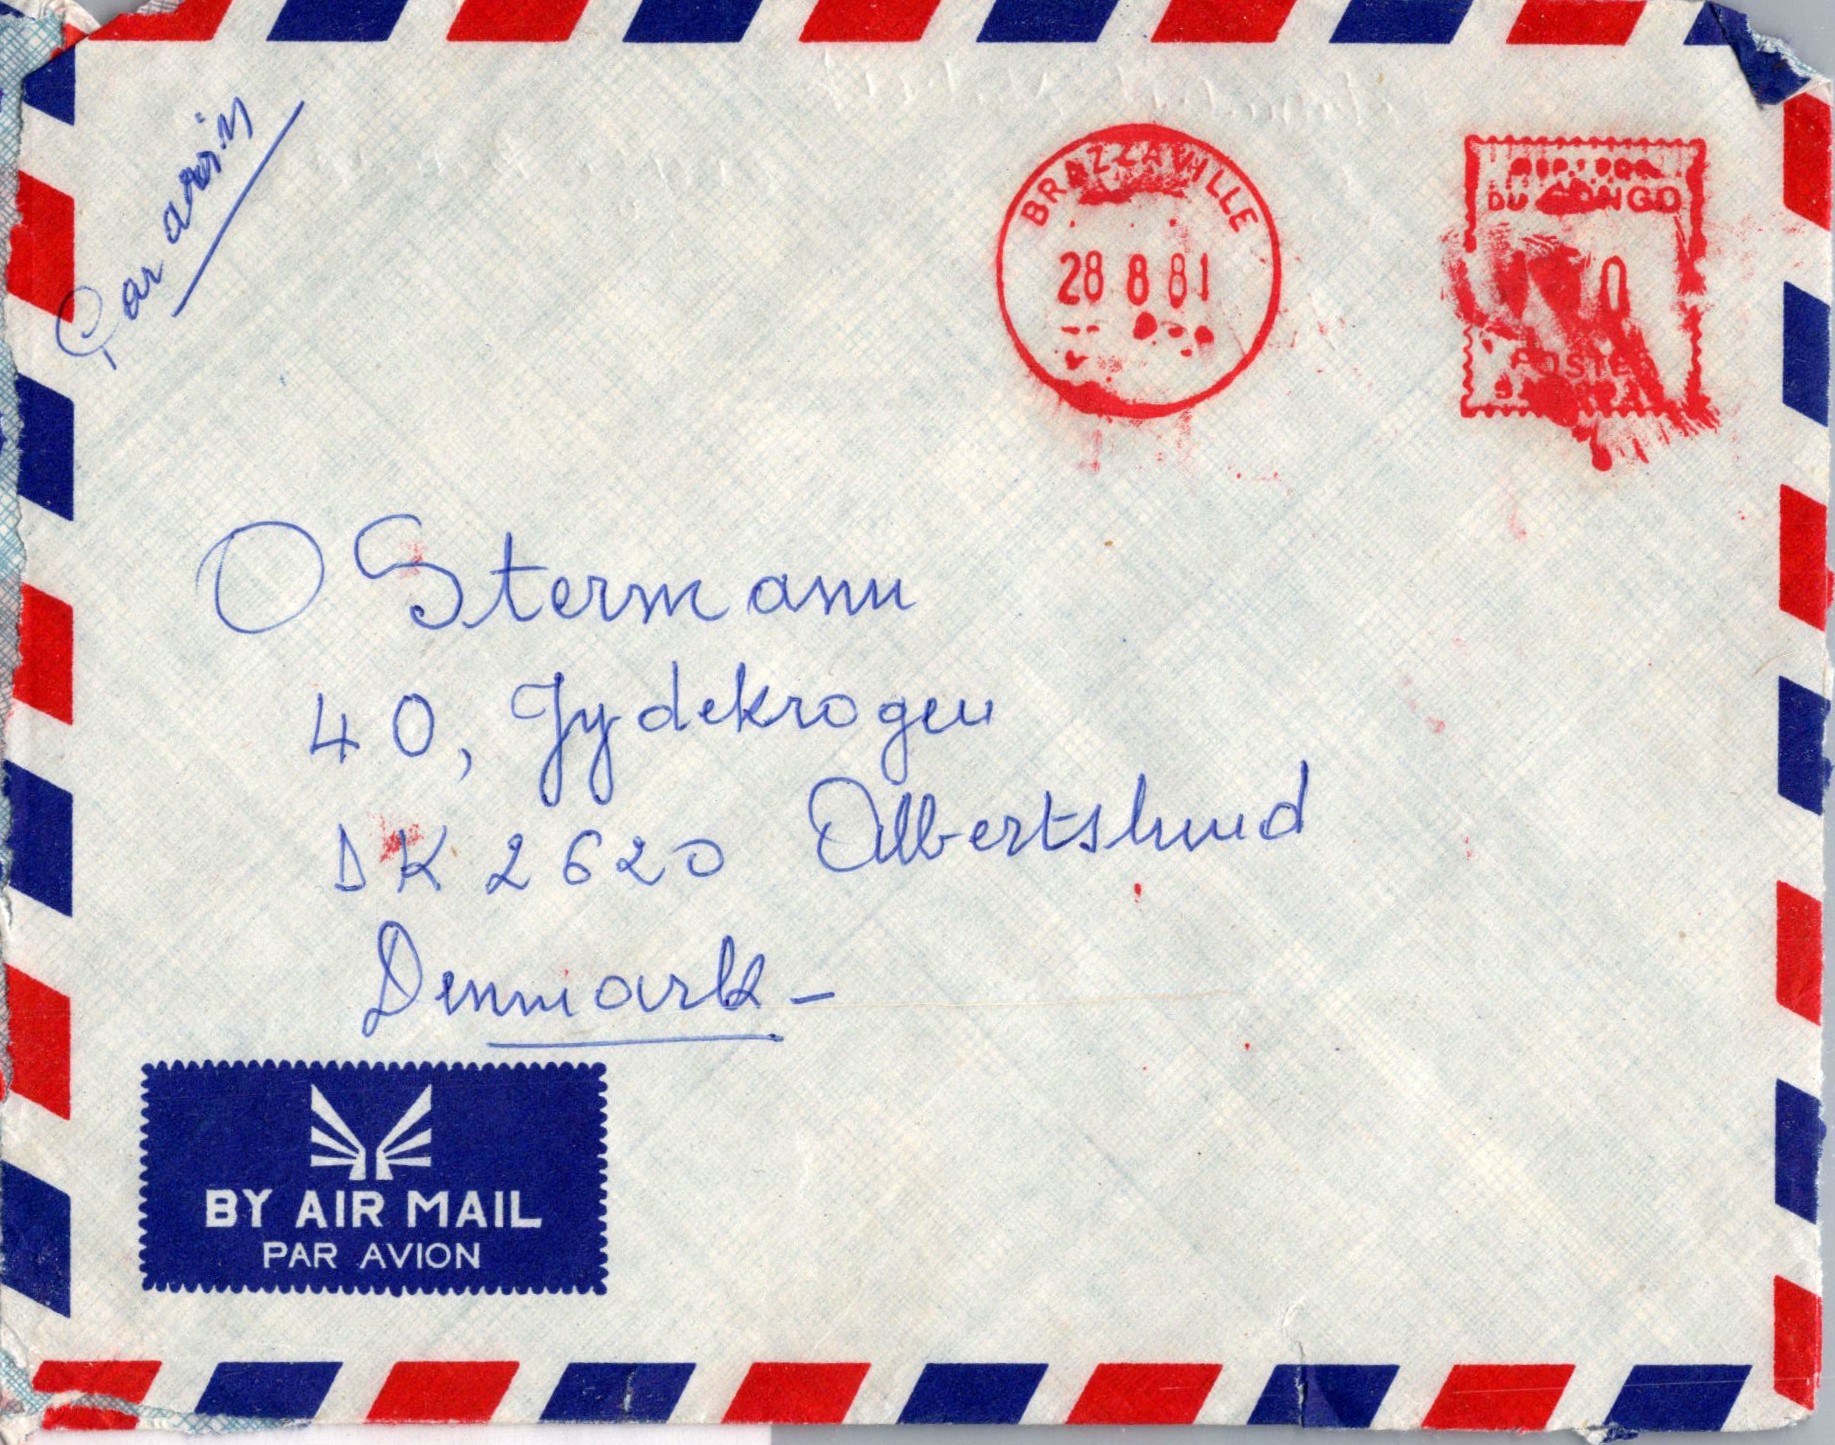 Par avion
BRAZZAVILLE
28 8 81
REP. POP.
DU CONGO
POSTES
O Stermann
40, Jydekrogen
DK 2620 Albertslund
Denmark -
BY AIR MAIL
PAR AVION